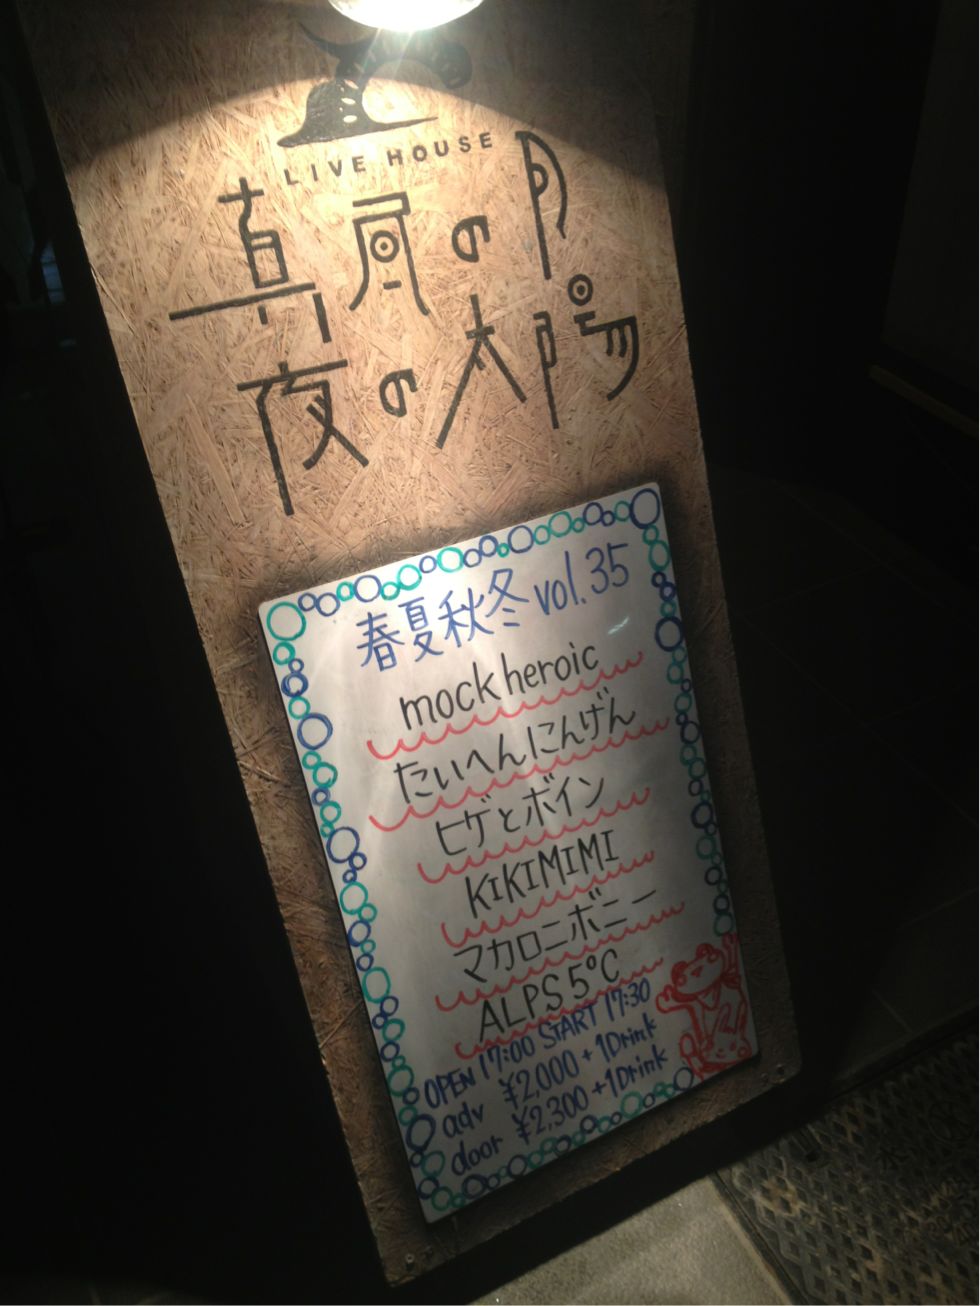 LIVE HOUSE
真昼の月
夜の太陽
春夏秋冬 vol.35
mock heroic
たいへんにんげん
ヒゲとボイン
KIKIMIMI
マカロニボニー
ALPS 5℃
OPEN 17:00 START 17:30
adv ¥2,000 + 1Drink
door ¥2,300 + 1Drink